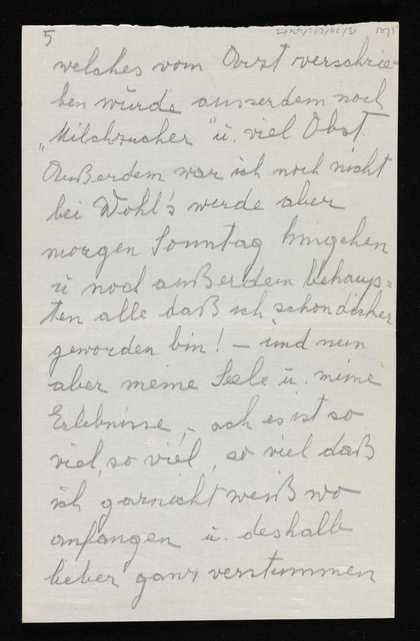 5
welches vom Arzt verschrie-
ben wurde ausserdem noch
„Milchzucker" u. viel Obst.
Außerdem war ich noch nicht
bei Wohl's werde aber
morgen Sonntag hingehen
u noch außerdem behaup=
ten alle daß ich schon dicker
geworden bin! – und nun
aber meine Seele u. meine
Erlebnisse, – ach es ist so
viel, so viel, so viel daß
ich garnicht weiß wo
anfangen u. deshalb
lieber ganz verstummen